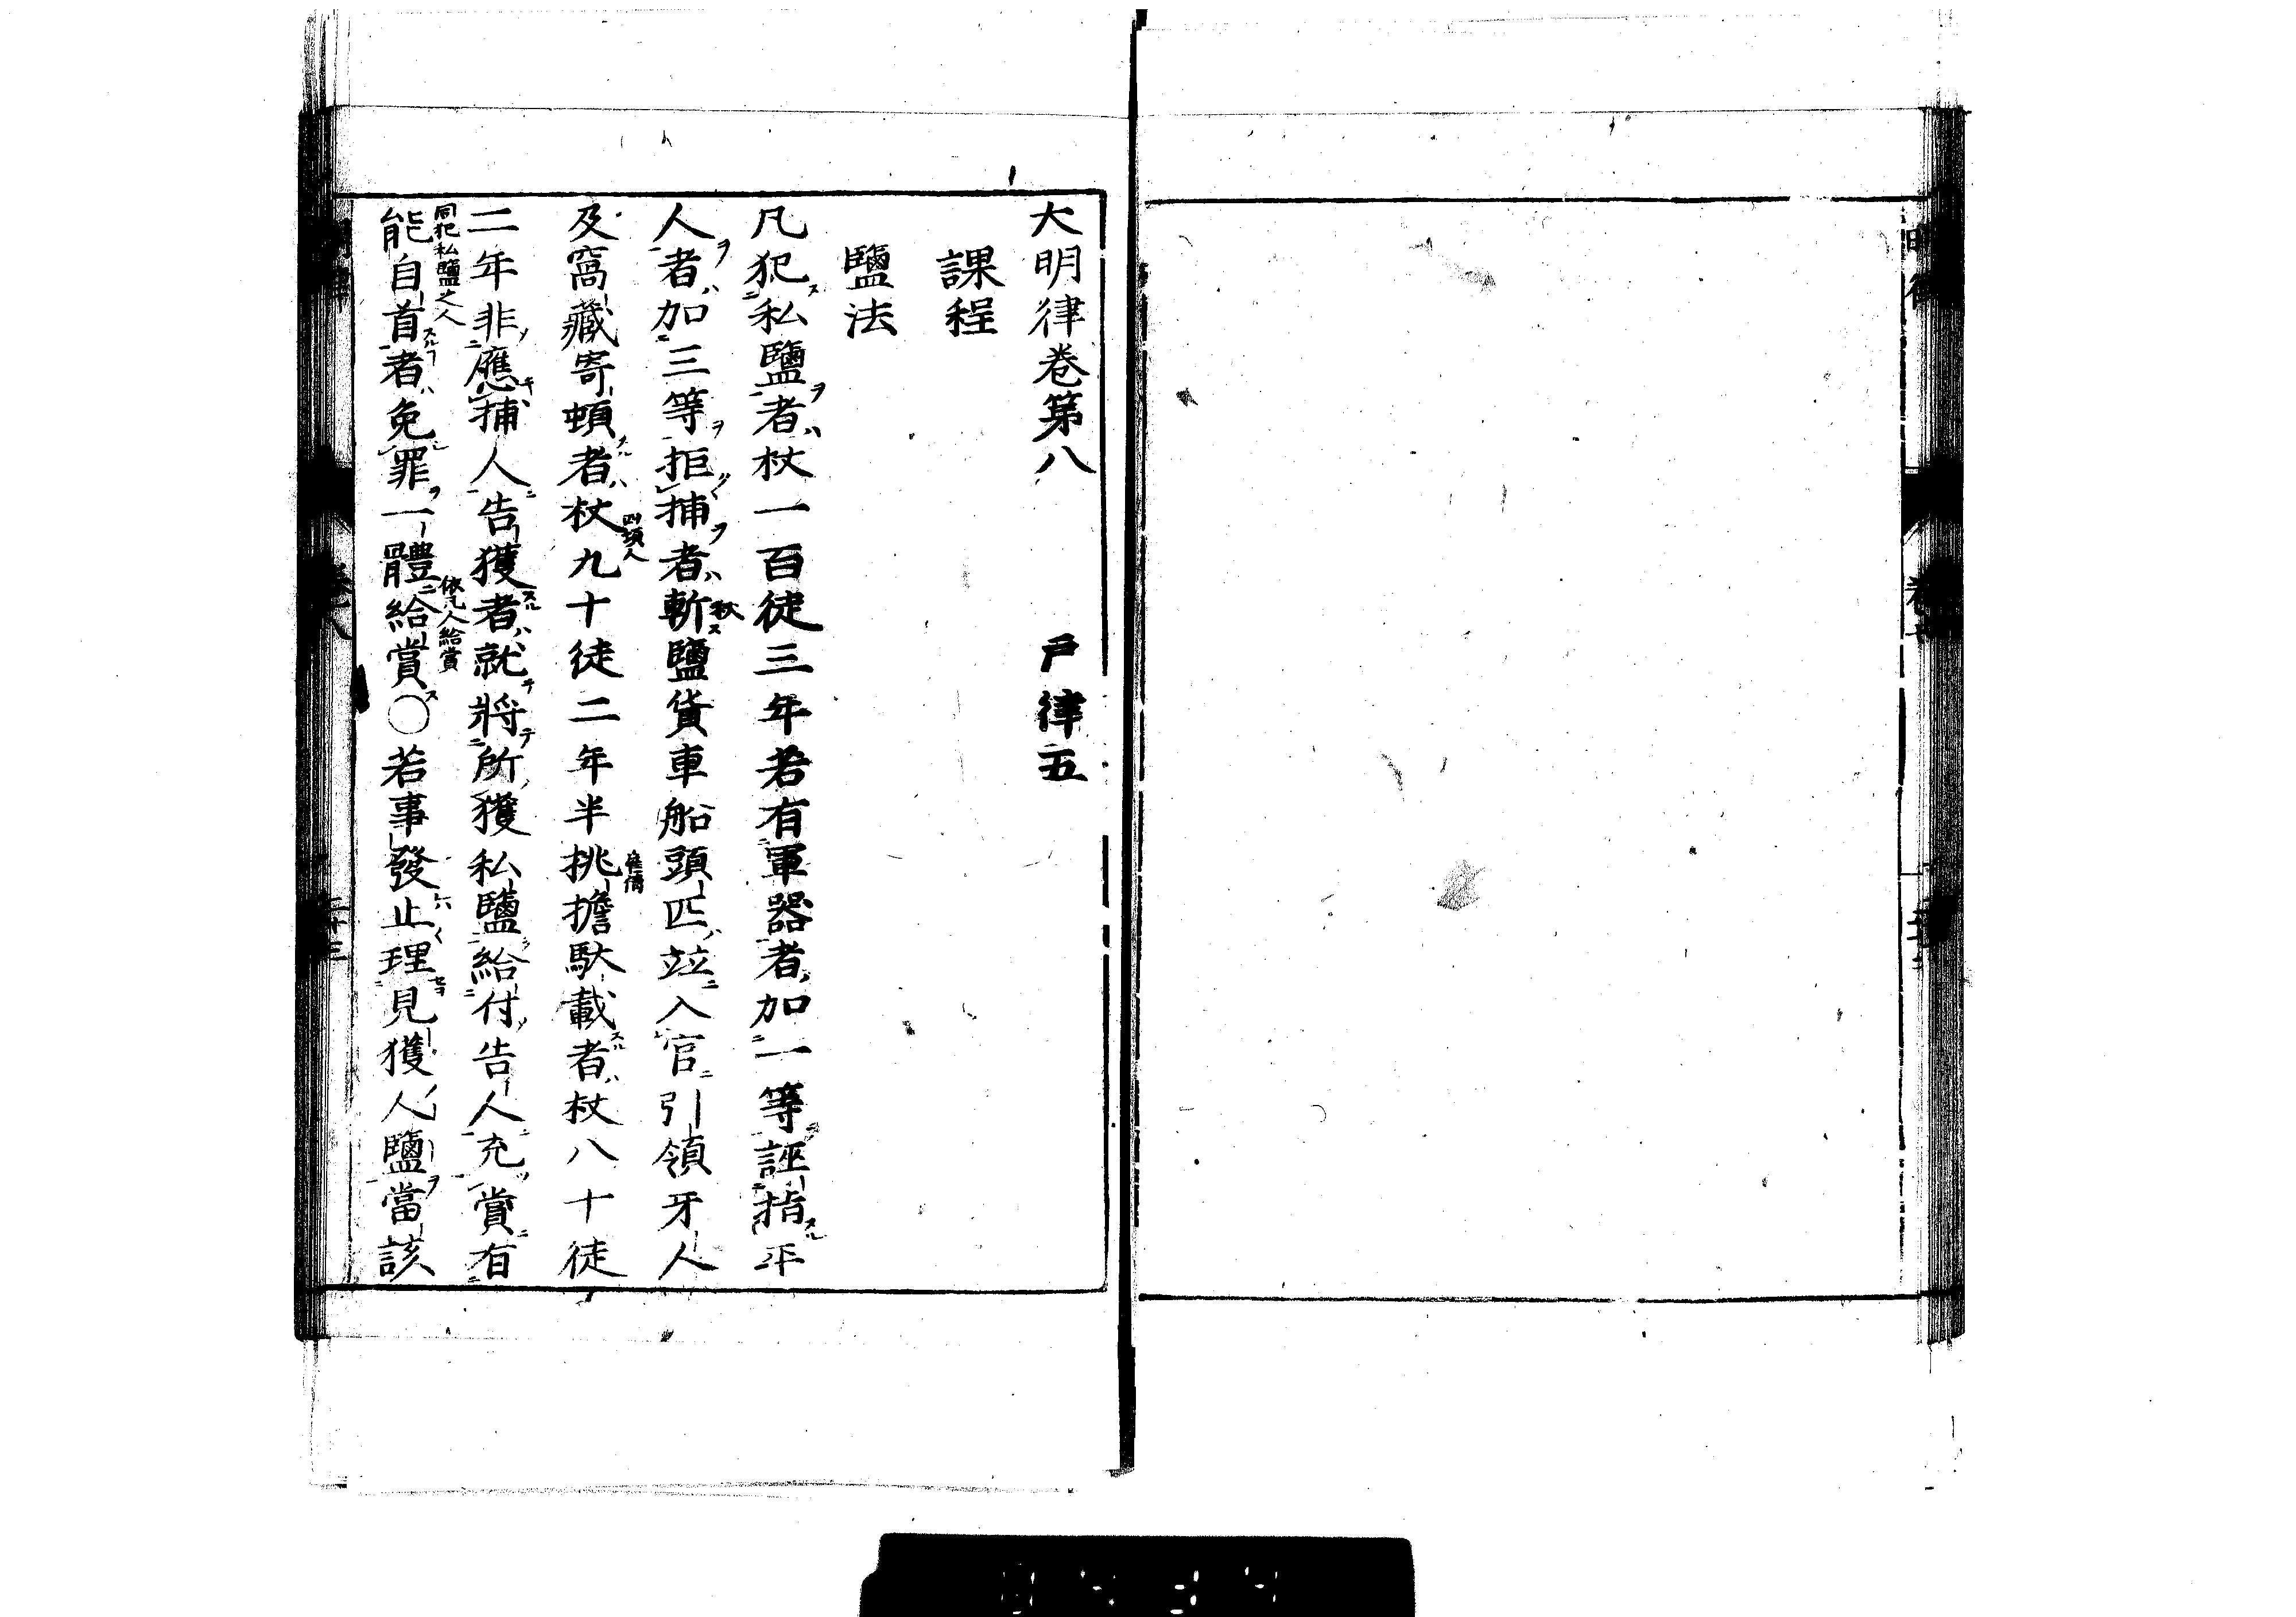 大明律卷第八　戸律五
課程
鹽法
凡犯私鹽者杖一百徒三年若有軍器者加一等誣指平
人者加三等拒捕者斬鹽貨車船頭匹竝入官引領牙人
及窩藏寄頓者杖九十徒二年半挑擔馱載者杖八十徒
四項人
二年非應捕人告獲者就將所獲私鹽給付告人充賞有
同犯私鹽之人
能自首者免罪一體給賞〇若事發止理見獲人鹽當該
依凡人給賞